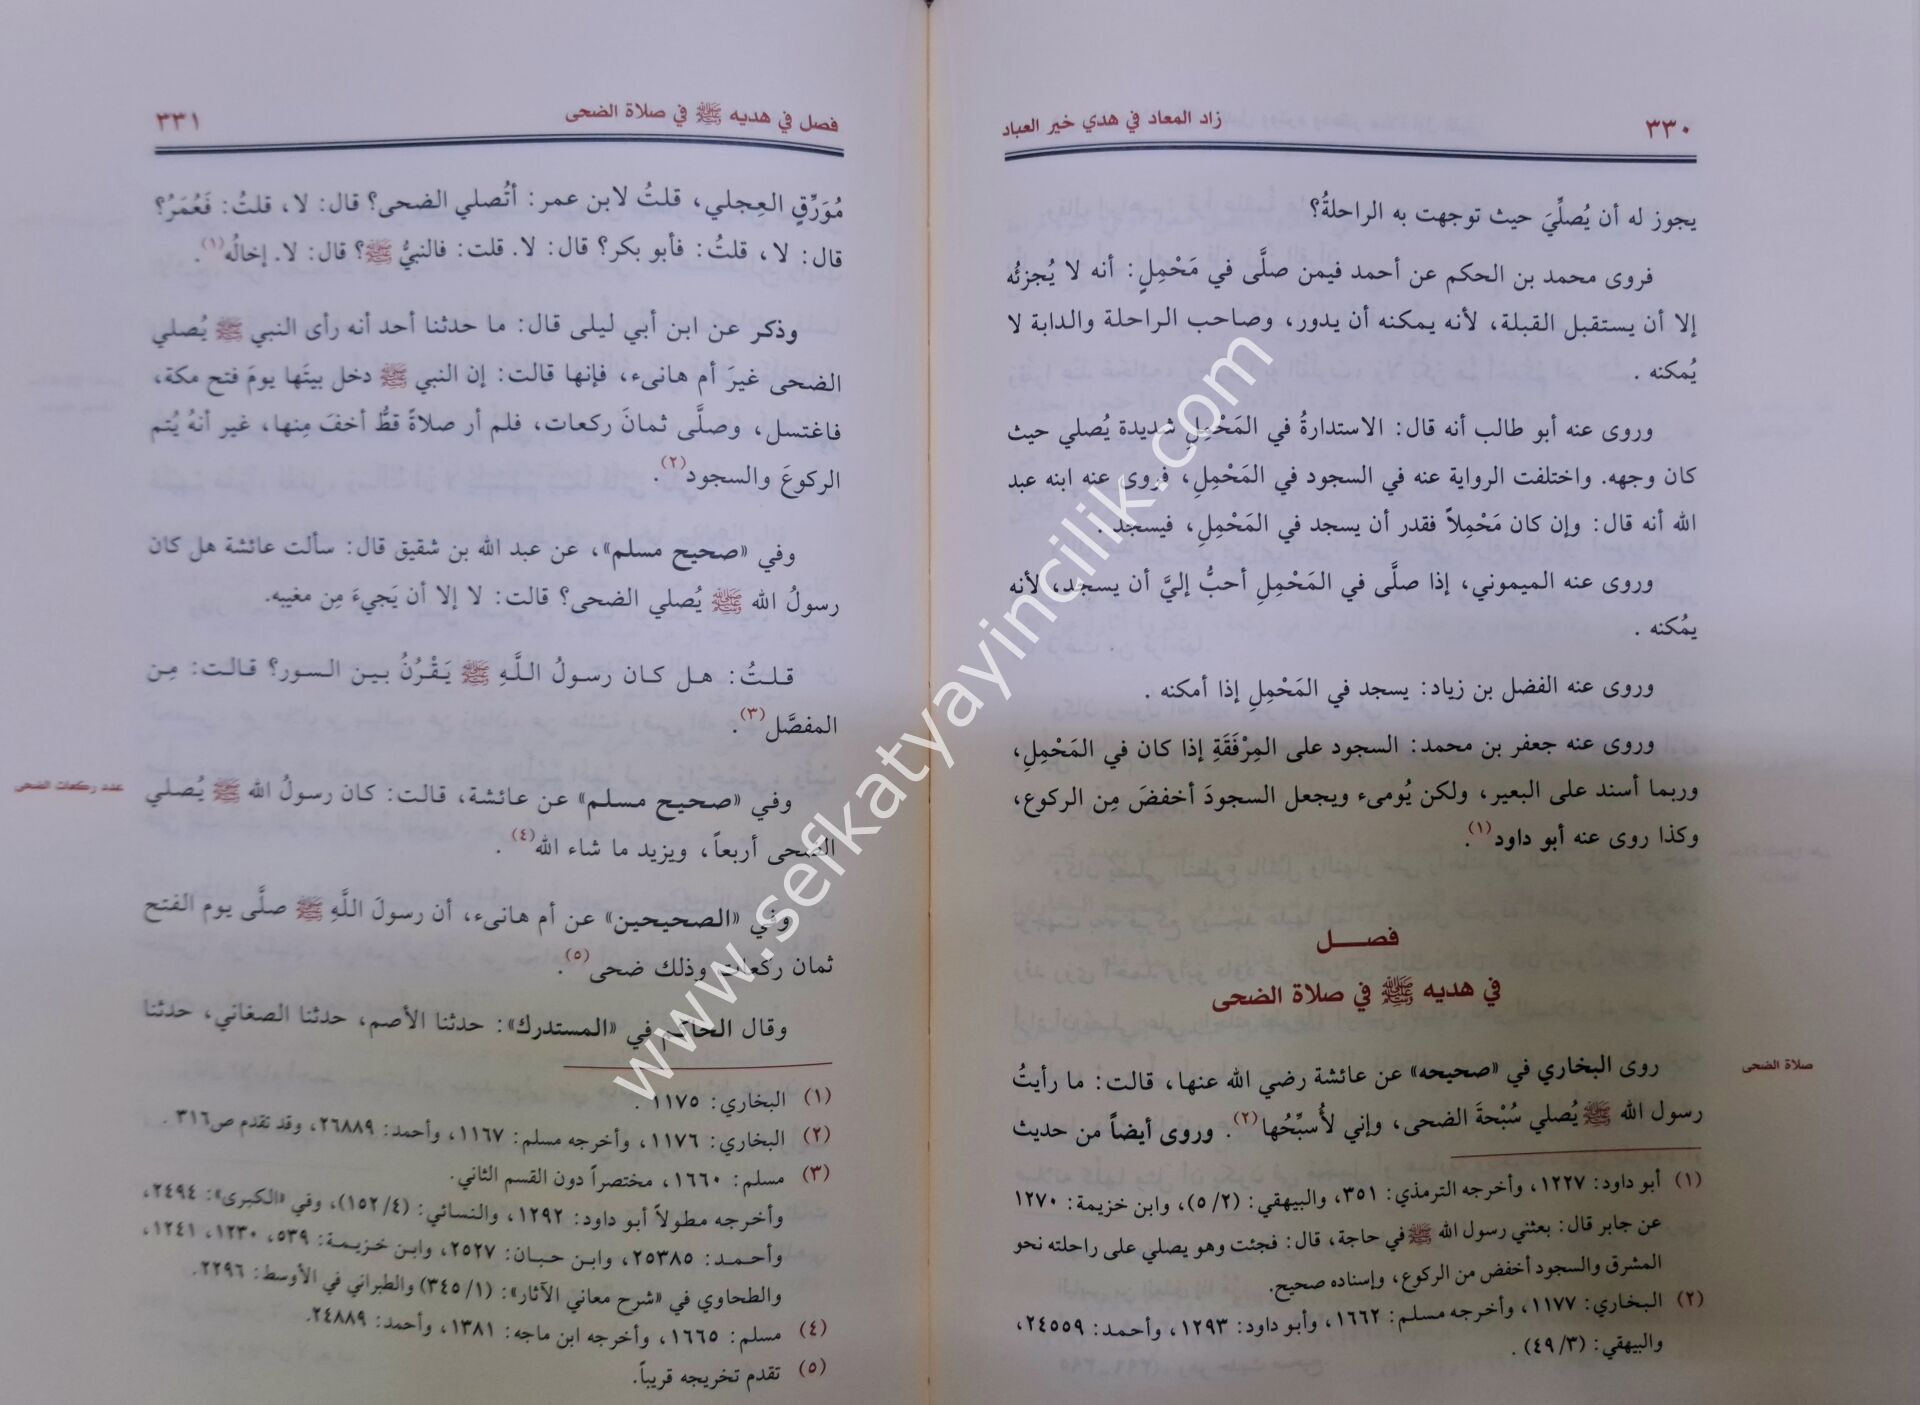 ٣٣٠
زاد المعاد في هدي خير العباد
يجوز له أن يُصلِّيَ حيث توجهت به الراحلةُ؟
فروى محمد بن الحكم عن أحمد فيمن صلَّى في مَحْمِلٍ: أنه لا يُجزئُه
إلا أن يستقبل القبلة، لأنه يمكنه أن يدور، وصاحب الراحلة والدابة لا
يُمكنه .
وروى عنه أبو طالب أنه قال: الاستدارةُ في المَحْمِلِ شديدة يُصلي حيث
كان وجهه. واختلفت الرواية عنه في السجود في المَحْمِلِ، فروى عنه ابنه عبد
الله أنه قال: وإن كان مَحْمِلاً فقدر أن يسجد في المَحْمِلِ، فيسجد .
وروى عنه الميموني، إذا صلَّى في المَحْمِلِ أحبُّ إليَّ أن يسجد، لأنه
يمُكنه .
وروى عنه الفضل بن زياد: يسجد في المَحْمِلِ إذا أمكنه .
وروى عنه جعفر بن محمد: السجود على المِرْفَقَةِ إذا كان في المَحْمِلِ،
وربما أسند على البعير، ولكن يُومىء ويجعل السجودَ أخفضَ مِن الركوع،
وكذا روى عنه أبو داود(١).
فصل
في هديه ﷺ في صلاة الضحى
صلاة الضحى
روى البخاري في «صحيحه» عن عائشة رضي الله عنها، قالت: ما رأيتُ
رسول الله ﷺ يُصلي سُبْحةَ الضحى، وإني لأُسبِّحُها(٢). وروى أيضاً من حديث
(١) أبو داود: ١٢٢٧، وأخرجه الترمذي: ٣٥١، والبيهقي: (٥/٢)، وابن خزيمة: ١٢٧٠
عن جابر قال: بعثني رسول الله ﷺ في حاجة، قال: فجئت وهو يصلي على راحلته نحو
المشرق والسجود أخفض من الركوع، وإسناده صحيح.
(٢) البخاري: ١١٧٧، وأخرجه مسلم: ١٦٦٢، وأبو داود: ١٢٩٣، وأحمد: ٢٤٥٥٩،
والبيهقي: (٤٩/٣) .
فصل في هديه ﷺ في صلاة الضحى
٣٣١
مُوَرِّقٍ العِجلي، قلتُ لابن عمر: أتُصلي الضحى؟ قال: لا، قلتُ: فَعُمَرُ؟
قال: لا، قلتُ: فأبو بكر؟ قال: لا. قلت: فالنبيُّ ﷺ؟ قال: لا. إخالُه(١).
وذكر عن ابن أبي ليلى قال: ما حدثنا أحد أنه رأى النبي ﷺ يُصلي
الضحى غيرَ أم هانىء، فإنها قالت: إن النبي ﷺ دخل بيتَها يومَ فتح مكة،
فاغتسل، وصلَّى ثمانَ ركعات، فلم أر صلاةً قطُّ أخفَ مِنها، غير أنهُ يُتم
الركوعَ والسجود(٢).
وفي «صحيح مسلم»، عن عبد الله بن شقيق قال: سألت عائشة هل كان
رسولُ الله ﷺ يُصلي الضحى؟ قالت: لا إلا أن يَجيءَ مِن مغيبه.
قلتُ: هل كان رسولُ اللَّهِ ﷺ يَقْرُنُ بين السور؟ قالت: مِن
المفصَّل(٣).
عدد ركعات الضحى
وفي «صحيح مسلم» عن عائشة، قالت: كان رسولُ الله ﷺ يُصلي
الضحى أربعاً، ويزيد ما شاء الله(٤) .
وفي «الصحيحين» عن أم هانىء، أن رسولَ اللَّهِ ﷺ صلَّى يوم الفتح
ثمان ركعات وذلك ضحى(٥).
وقال الحاكم في «المستدرك»: حدثنا الأصم، حدثنا الصغاني، حدثنا
(١) البخاري: ١١٧٥ .
(٢) البخاري: ١١٧٦، وأخرجه مسلم: ١١٦٧، وأحمد: ٢٦٨٨٩، وقد تقدم ص٣١٦ .
(٣) مسلم: ١٦٦٠، مختصراً دون القسم الثاني.
وأخرجه مطولاً أبو داود: ١٢٩٢، والنسائي: (١٥٢/٤)، وفي «الكبرى»: ٢٤٩٤،
وأحمد: ٢٥٣٨٥، وابن حبان: ٢٥٢٧، وابن خزيمة: ٥٣٩، ١٢٣٠، ١٢٤١،
والطحاوي في «شرح معاني الآثار»: (٣٤٥/١) والطبراني في الأوسط: ٢٢٩٦.
(٤) مسلم: ١٦٦٥، وأخرجه ابن ماجه: ١٣٨١، وأحمد: ٢٤٨٨٩.
(٥) تقدم تخريجه قريباً.
www.sefkatyayincilik.com